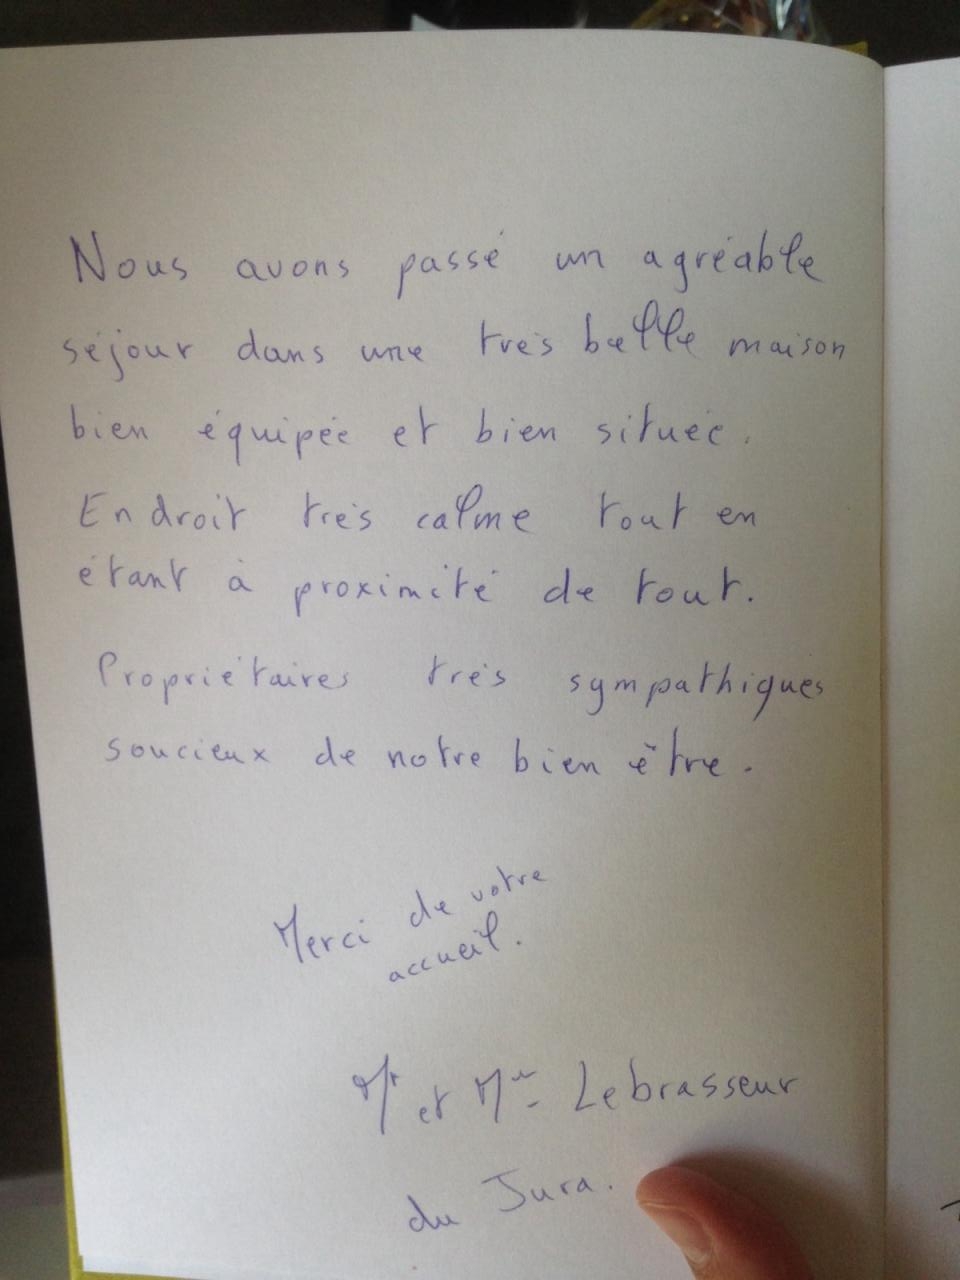 Nous avons passé un agréable
séjour dans une très belle maison
bien équipée et bien située.
Endroit très calme tout en
étant à proximité de tout.
Propriétaires très sympathiques
soucieux de notre bien être.
Merci de votre
accueil.
Mr et Mme Lebrasseur
du Jura.